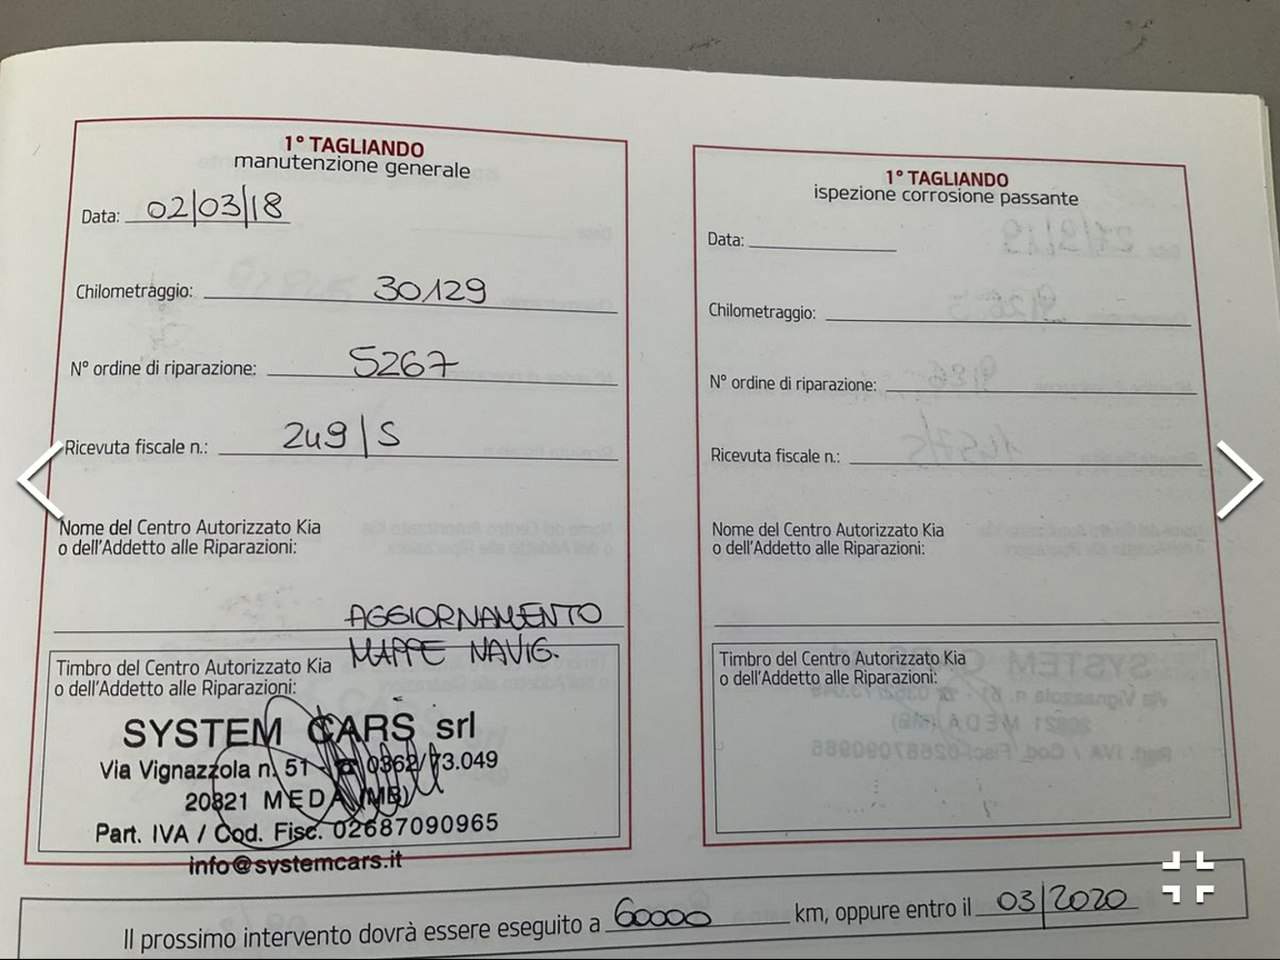 1° TAGLIANDO
manutenzione generale
Data: 02/03/18
Chilometraggio: 30129
N° ordine di riparazione: 5267
Ricevuta fiscale n.: 249/S
Nome del Centro Autorizzato Kia
o dell'Addetto alle Riparazioni:
AGGIORNAMENTO
MAPPE NAVIG.
Timbro del Centro Autorizzato Kia
o dell'Addetto alle Riparazioni:
SYSTEM CARS srl
Via Vignazzola n. 51 - ☎ 0362/73.049
20821 MEDA (MB)
Part. IVA / Cod. Fisc. 02687090965
info@systemcars.it
1° TAGLIANDO
ispezione corrosione passante
Data:
Chilometraggio:
N° ordine di riparazione:
Ricevuta fiscale n.:
Nome del Centro Autorizzato Kia
o dell'Addetto alle Riparazioni:
Timbro del Centro Autorizzato Kia
o dell'Addetto alle Riparazioni:
Il prossimo intervento dovrà essere eseguito a 60000 km, oppure entro il 03/2020